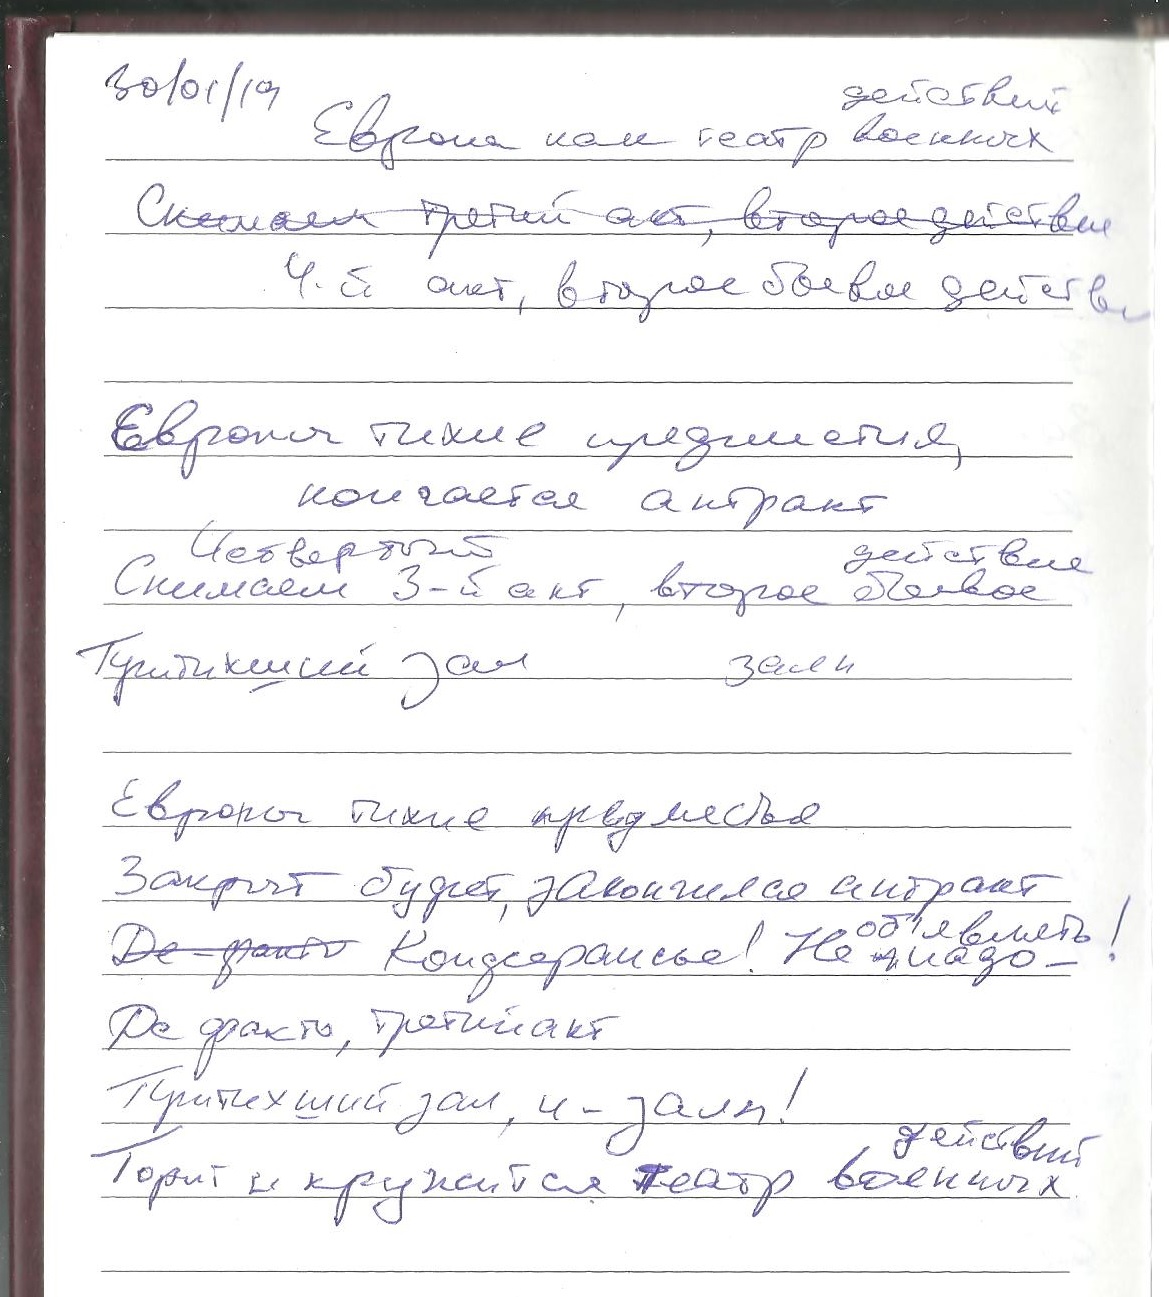 30/01/19
действий
Европа как театр военных
Снимаем третий акт, второе действие
4-й акт, второе боевое действи
Европы тихие предместия,
кончается антракт
Четвертый действие
Снимаем 3-й акт, второе боевое
Притихший зал залп
Европы тихие предместья
Закрыт буфет, закончился антракт
объявлять!
Де-факто Кондерансье! Не надо –
Де факто, третий акт
Притихший зал, и – залп!
действий
Горит и кружится театр военных